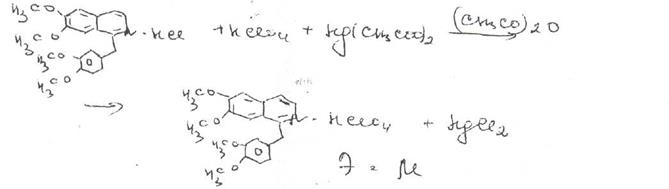 H3CO
H3CO
H3CO
H3CO
N · HCl + HClO4 + Hg(CH3COO)2 (CH3CO)2O
H3CO
H3CO
H3CO
H3CO
N · HClO4 + HgCl2